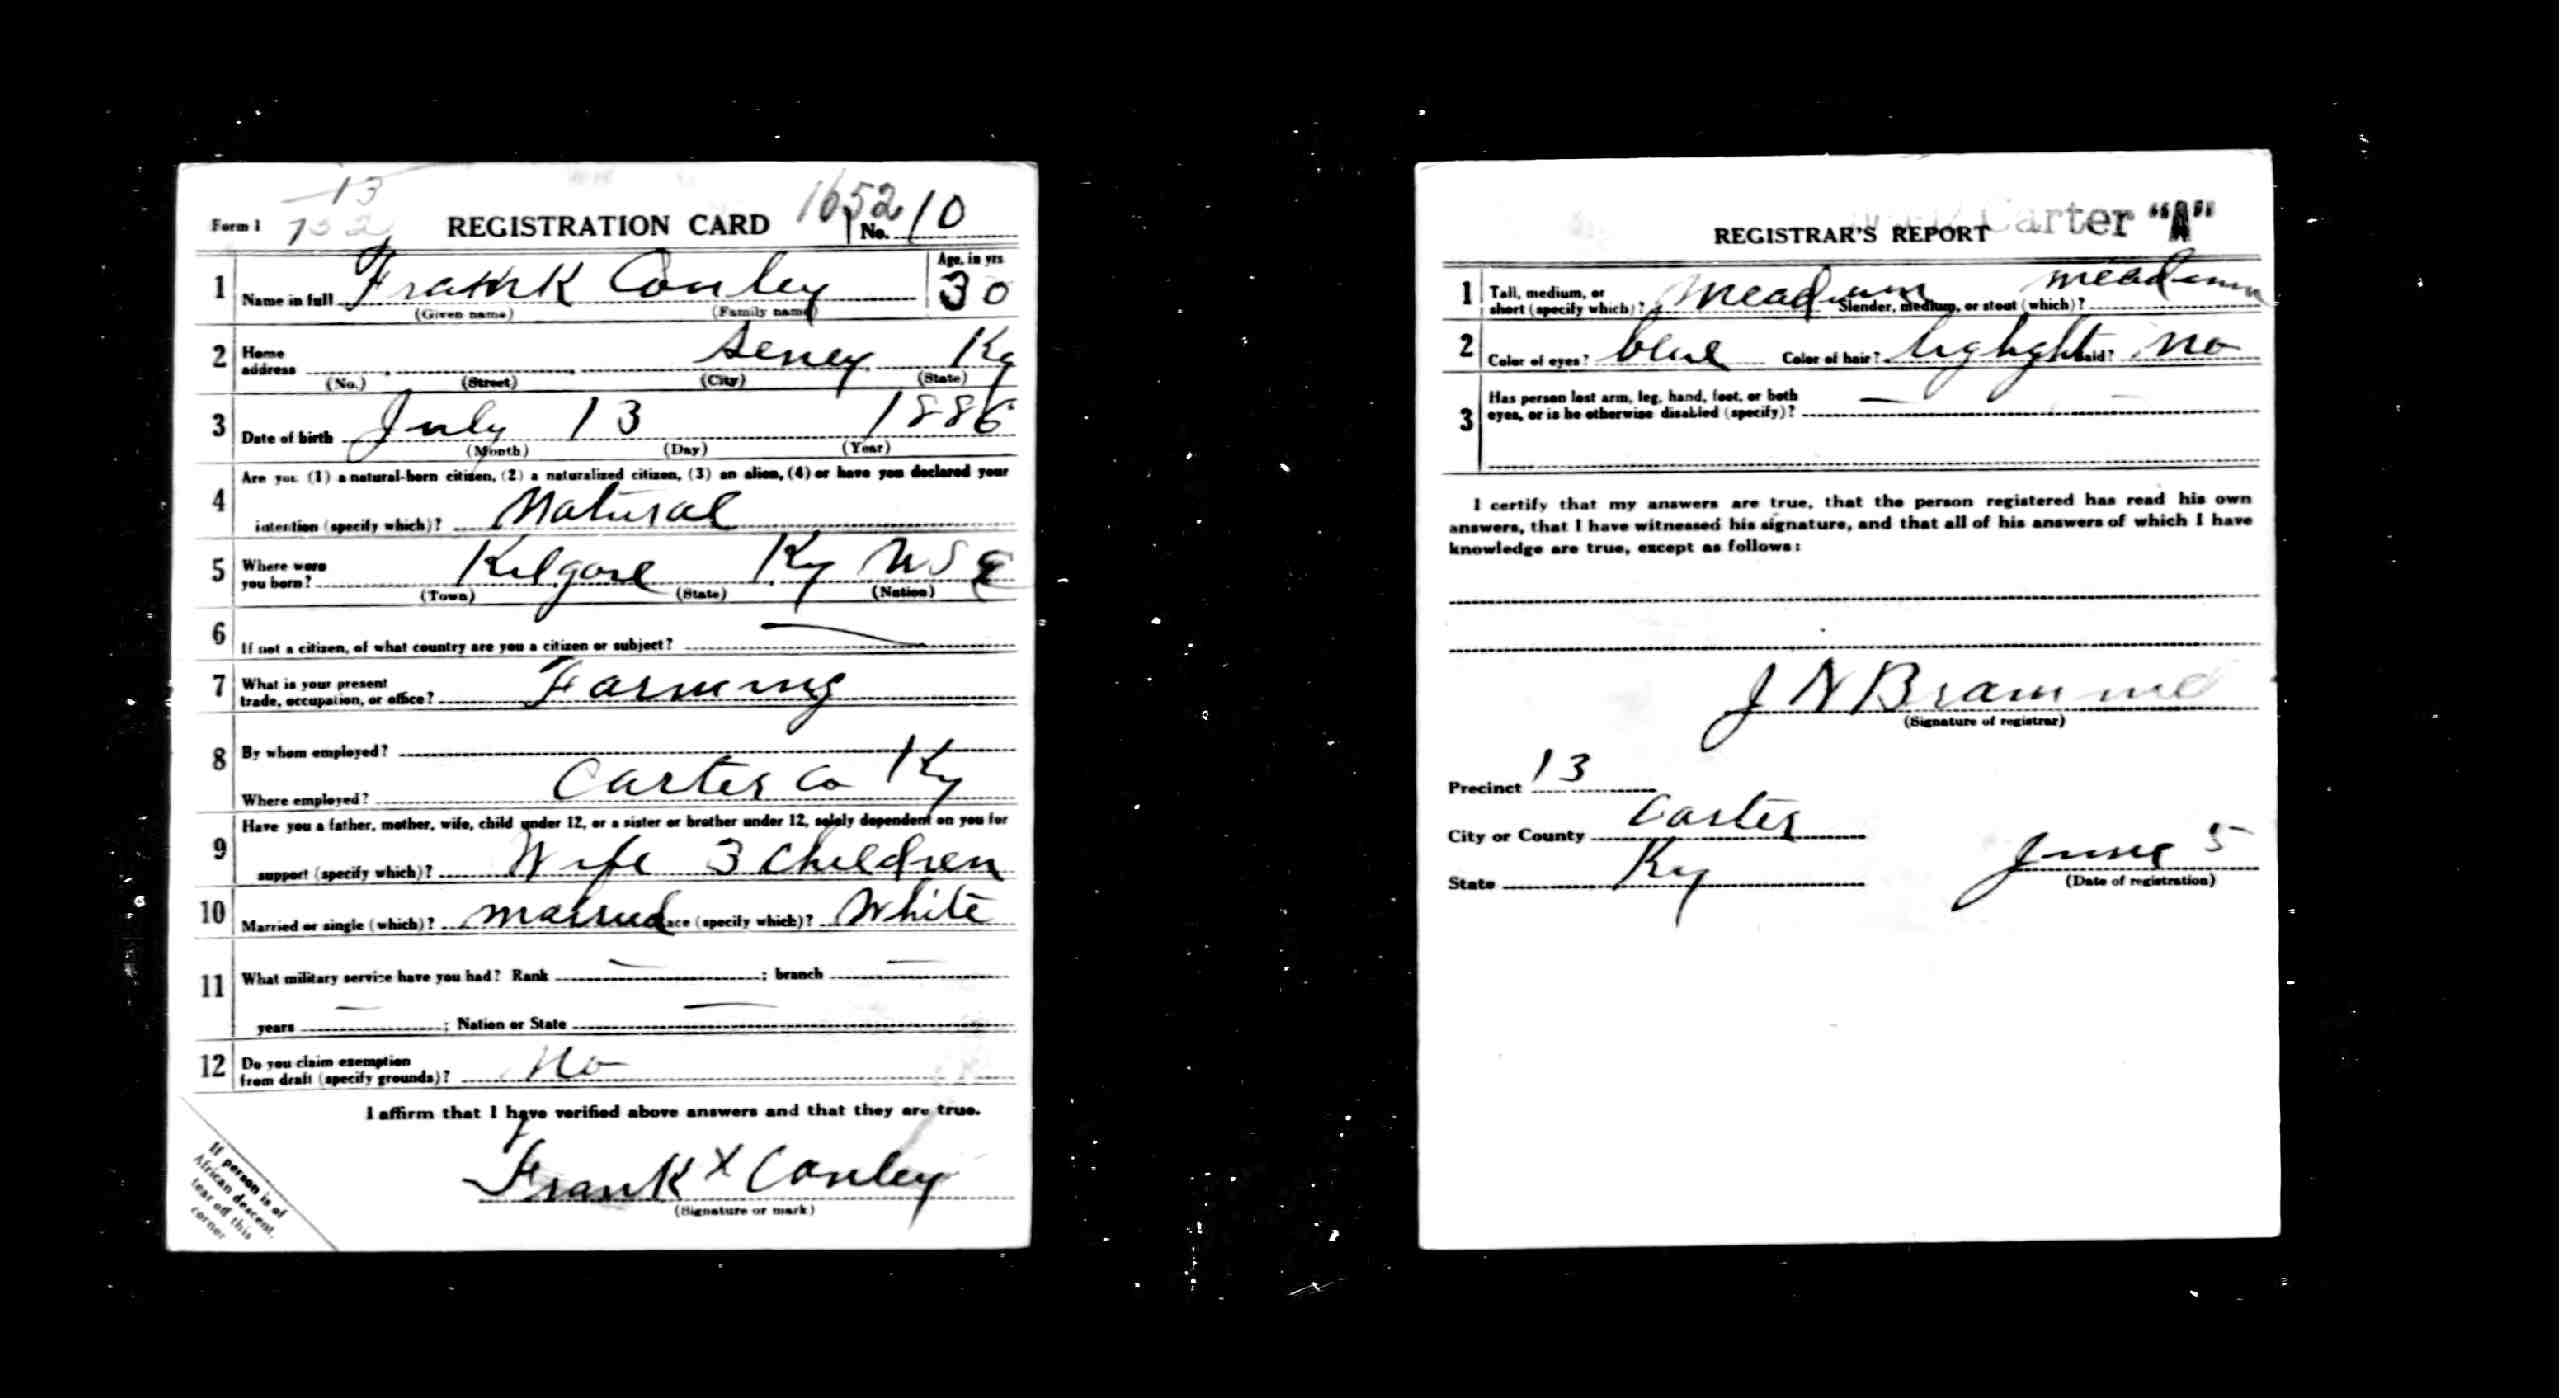 13
Form 1 752 REGISTRATION CARD 1652 No. 10
1 Name in full Frank Conley Age, in yrs 30
(Given name) (Family name)
2 Home address Seney Ky
(No.) (Street) (City) (State)
3 Date of birth July 13 1886
(Month) (Day) (Year)
4 Are you (1) a natural-born citizen, (2) a naturalized citizen, (3) an alien, (4) or have you declared your
intention (specify which)? Natural
5 Where were you born? Kilgore Ky
(Town) (State) (Nation)
6 If not a citizen, of what country are you a citizen or subject? —
7 What is your present trade, occupation, or office? Farming
8 By whom employed?
Where employed? Carter Co Ky
9 Have you a father, mother, wife, child under 12, or a sister or brother under 12, solely dependent on you for
support (specify which)? Wife 3 Children
10 Married or single (which)? married Race (specify which)? White
11 What military service have you had? Rank — ; branch —
years — ; Nation or State —
12 Do you claim exemption from draft (specify grounds)? No
I affirm that I have verified above answers and that they are true.
Frank X Conley
(Signature or mark)
If person is of
African descent,
tear off this
corner
Carter "A"
REGISTRAR'S REPORT
1 Tall, medium, or short (specify which)? meadium Slender, medium, or stout (which)? meadium
2 Color of eyes? blue Color of hair? lighght Bald? no
3 Has person lost arm, leg, hand, foot, or both
eyes, or is he otherwise disabled (specify)? —
I certify that my answers are true, that the person registered has read his own
answers, that I have witnessed his signature, and that all of his answers of which I have
knowledge are true, except as follows:
J N Brammel
(Signature of registrar)
Precinct 13
City or County Carter
State Ky June 5
(Date of registration)